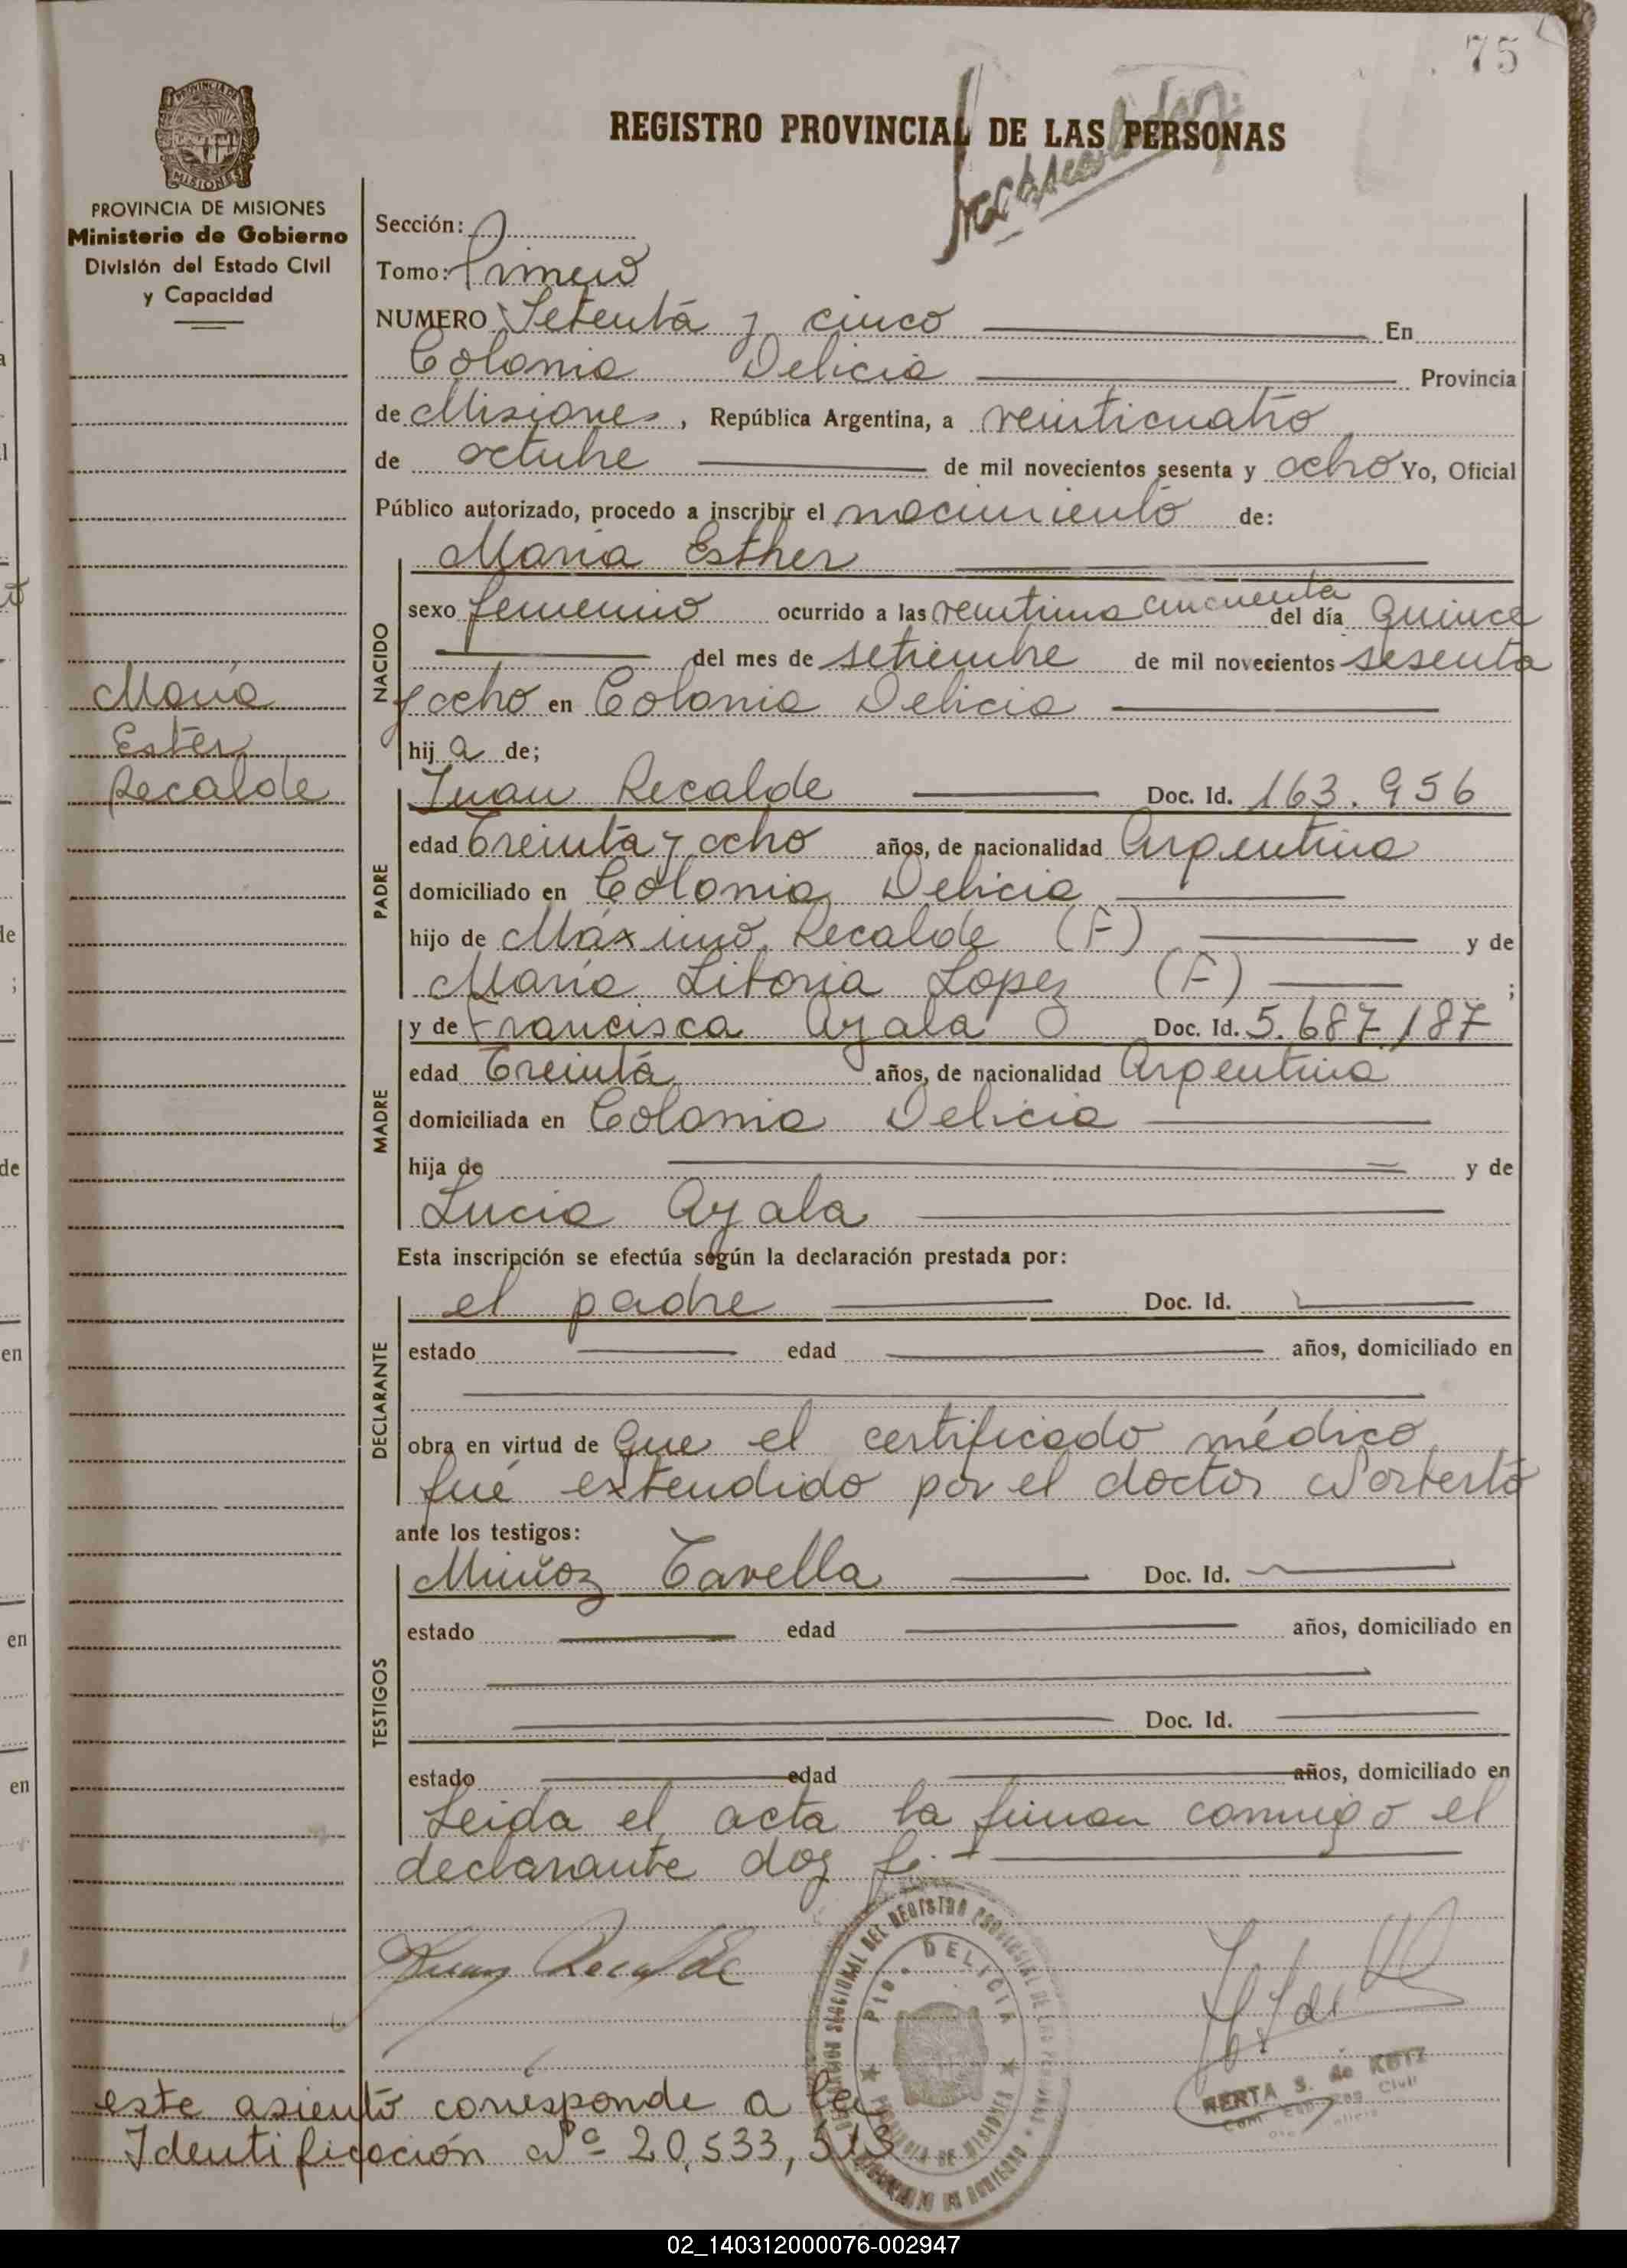 75
REGISTRO PROVINCIAL DE LAS PERSONAS
PROVINCIA DE MISIONES
PROVINCIA DE MISIONES
Ministerio de Gobierno
División del Estado Civil
y Capacidad
Sección:
Tomo: Primero
NUMERO Setenta y cinco En
Colonia Delicia Provincia
de Misiones, República Argentina, a veinticuatro
de octubre de mil novecientos sesenta y ocho Yo, Oficial
Público autorizado, procedo a inscribir el nacimiento de:
NACIDO
María Esther
sexo femenino ocurrido a las veintiuna cincuenta del día quince
del mes de setiembre de mil novecientos sesenta
y ocho en Colonia Delicia
hij a de;
María
Ester
Recalde
PADRE
Juan Recalde Doc. Id. 163.956
edad treinta y ocho años, de nacionalidad Argentina
domiciliado en Colonia Delicia
hijo de Máximo Recalde (F) y de
María Litoria Lopez (F) ;
MADRE
y de Francisca Ayala Doc. Id. 5.687.187
edad treinta años, de nacionalidad Argentina
domiciliada en Colonia Delicia
hija de y de
Lucia Ayala
Esta inscripción se efectúa según la declaración prestada por:
DECLARANTE
el padre Doc. Id.
estado edad años, domiciliado en
obra en virtud de que el certificado médico
fué extendido por el doctor Norberto
ante los testigos:
TESTIGOS
Muñoz Tavella Doc. Id.
estado edad años, domiciliado en
Doc. Id.
estado edad años, domiciliado en
Leida el acta la firman conmigo el
declarante doy fé.
Juan Recalde
DELEGACION SECCIONAL DEL REGISTRO PROVINCIAL DE LAS PERSONAS
Pto. DELICIA
PROVINCIA DE MISIONES
MINISTERIO DE GOBIERNO
HERTA S. de KUTZ
este asiento corresponde a la
Identificación Nº 20,533,513
02_140312000076-002947